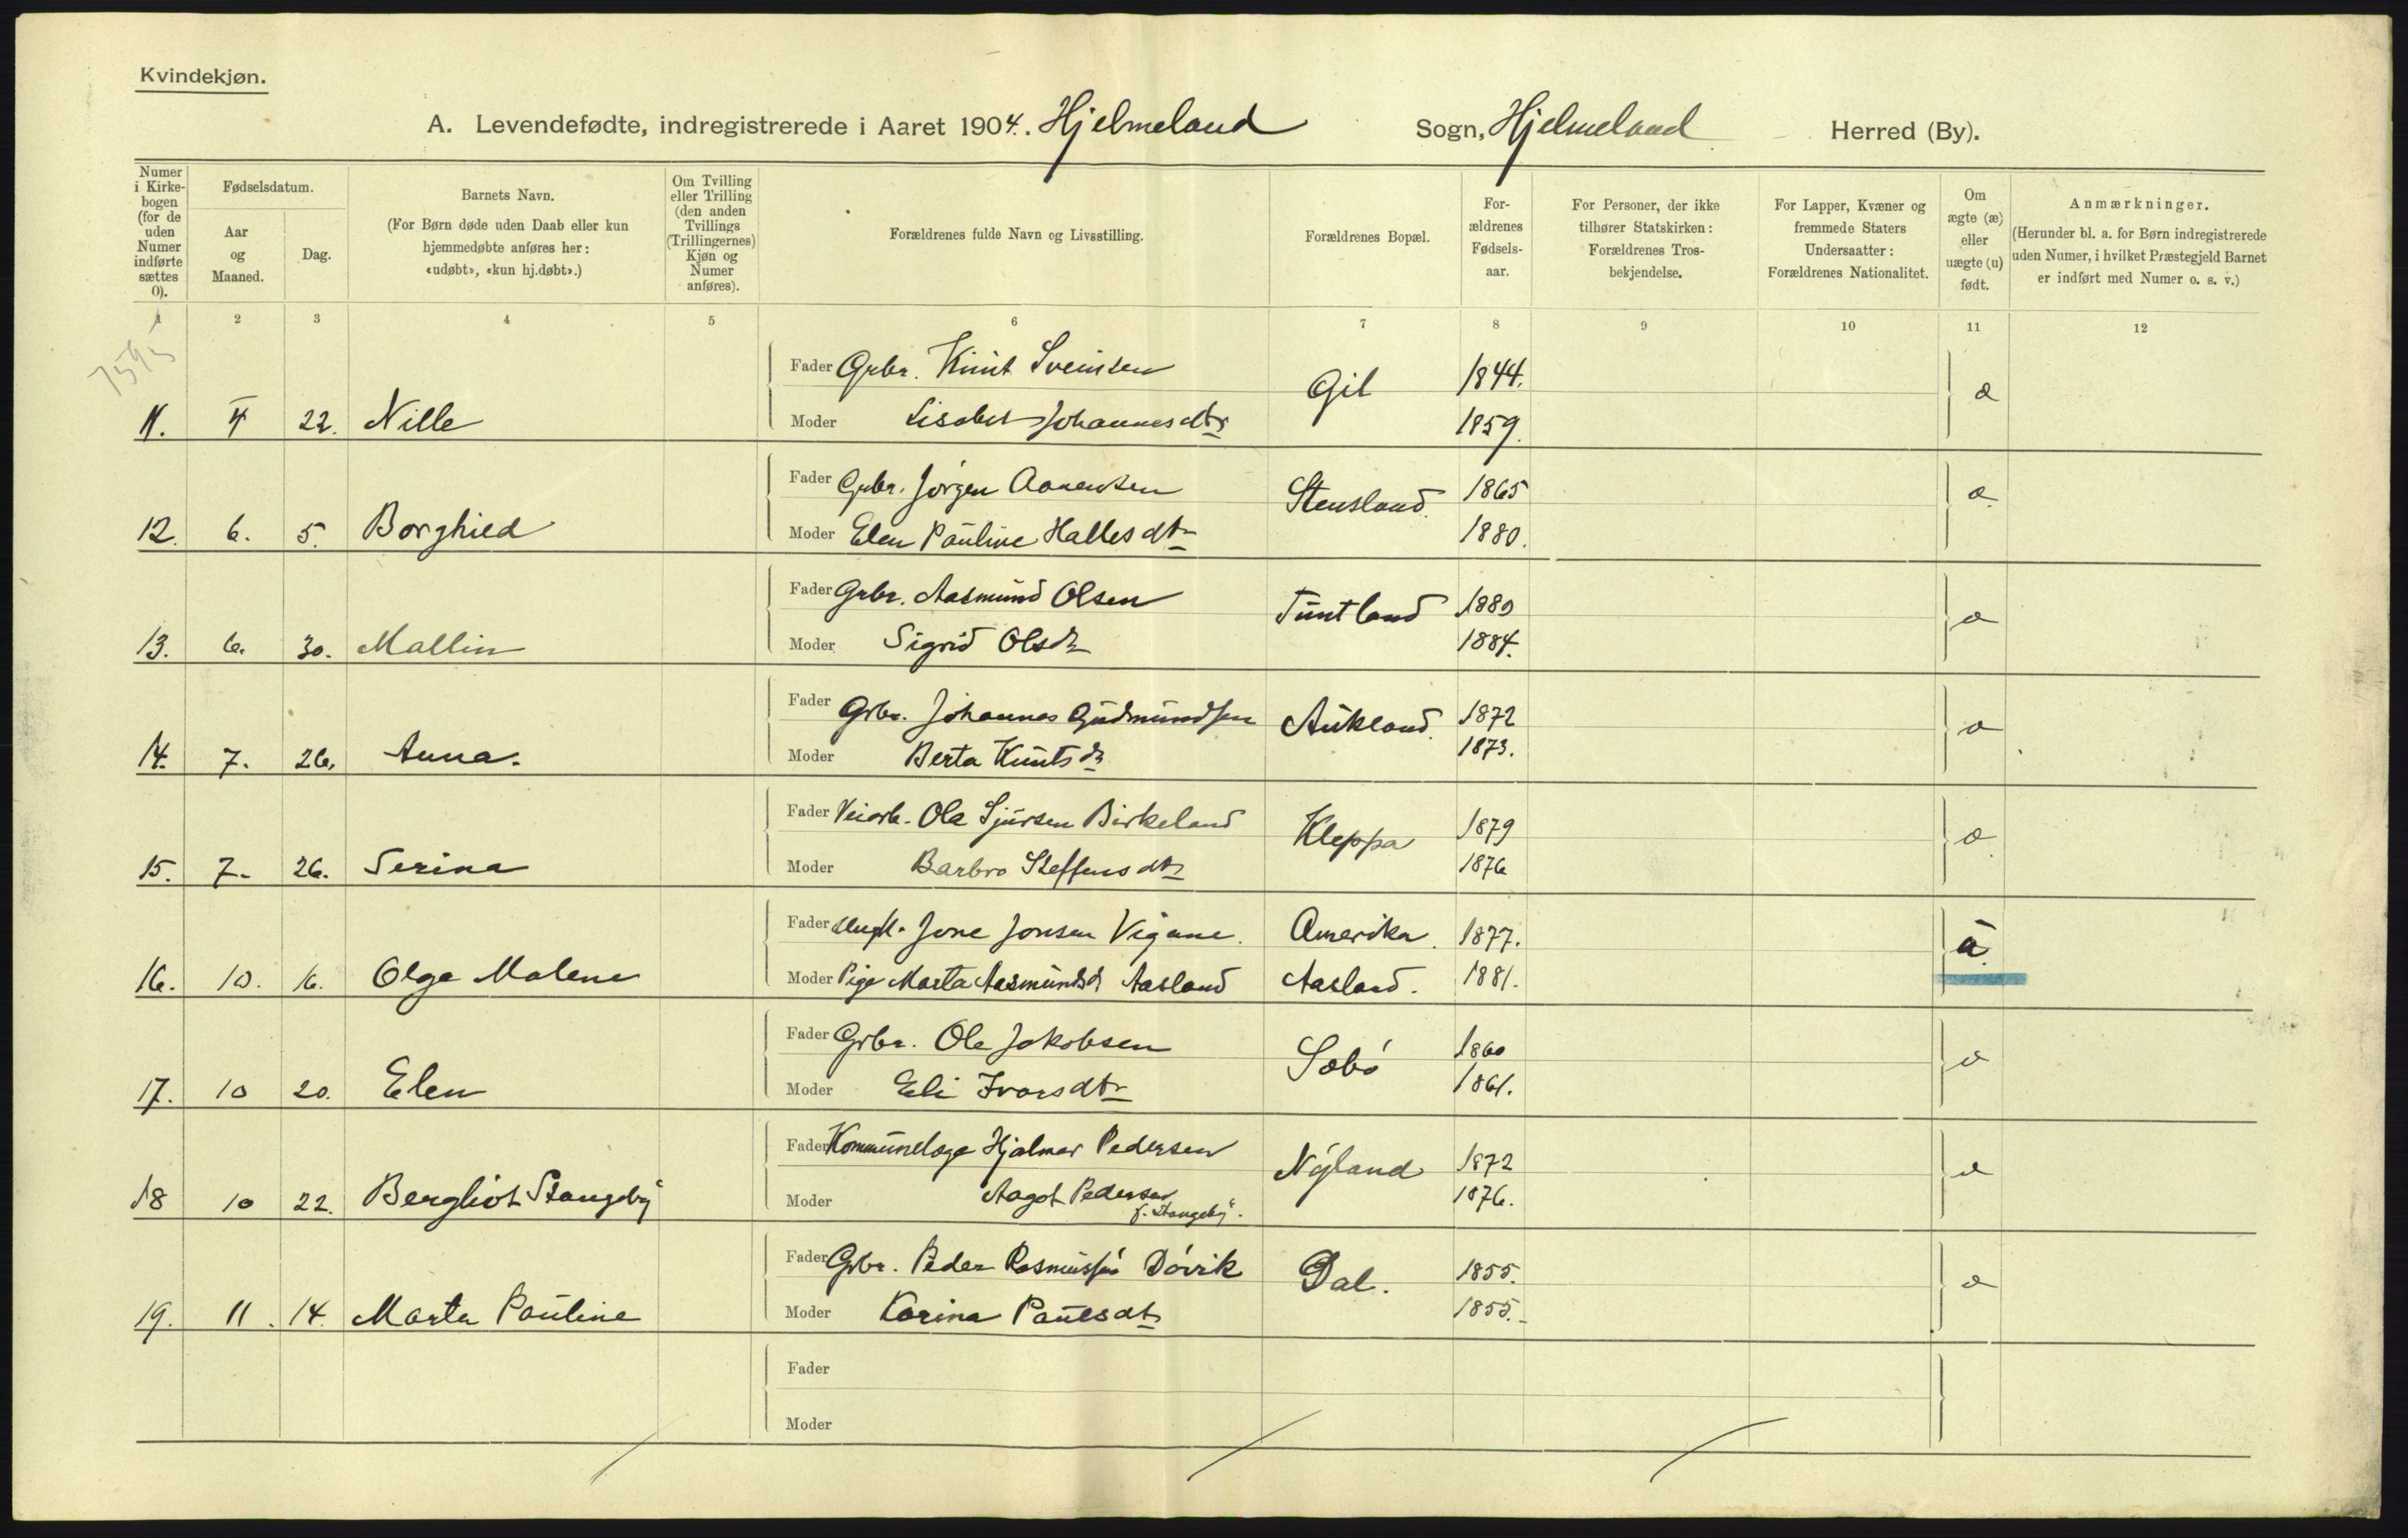 Kvindekjøn.
A. Levendefødte, indregistrerede i Aaret 1904. Hjelmeland Sogn, Hjelmeland Herred (By).
Numer i Kirkebogen (for de uden Numer indførte sættes 0).
Fødselsdatum.
Aar og Maaned.
Dag.
Barnets Navn.
(For Børn døde uden Daab eller kun hjemmedøbte anføres her: «udøbt», «kun hj.døbt».)
Om Tvilling eller Trilling (den anden Tvillings (Trillingernes) Kjøn og Numer anføres).
Forældrenes fulde Navn og Livsstilling.
Forældrenes Bopæl.
Forældrenes Fødselsaar.
For Personer, der ikke tilhører Statskirken: Forældrenes Trosbekjendelse.
For Lapper, Kvæner og fremmede Staters Undersaatter: Forældrenes Nationalitet.
Om ægte (æ) eller uægte (u) født.
Anmærkninger.
(Herunder bl. a. for Børn indregistrerede uden Numer, i hvilket Præstegjeld Barnet er indført med Numer o. s. v.)
1 2 3 4 5 6 7 8 9 10 11 12
Fader Grbr. Knut Sveinsen Gil 1844. æ
11. 4 22. Nille Moder Lisabet Johannesdtr 1859.
Fader Grbr. Jørgen Aanensen Stensland. 1865 æ
12. 6. 5. Borghild Moder Elen Pauline Hallesdtr 1880.
Fader Grbr. Aasmund Olsen Tuntland 1880 æ
13. 6. 30. Mallin Moder Sigrid Olsdr 1884.
Fader Grbr. Johannes Gudmundsen Aukland. 1872 æ
14. 7. 26. Anna. Moder Berta Knutsdr 1873.
Fader Veiarb. Ole Sjursen Birkeland Kleppa 1879 æ
15. 7. 26. Serina Moder Barbro Steffensdtr 1876
Fader Ungk. Jone Jonsen Vigane. Amerika. 1877. u
16. 10. 16. Olga Malene Moder Pige Marta Aasmundsdr Aasland Aasland. 1881.
Fader Grbr. Ole Jakobsen Sæbø 1860 æ
17. 10 20. Elen Moder Eli Ivarsdtr 1861.
Fader Kommunelæge Hjalmar Pedersen Nyland 1872 æ
18 10 22. Bergliot Stangeby Moder Aagot Pedersen f. Stangeby. 1876.
Fader Grbr. Peder Rasmussen Døvik Dal. 1855. æ
19. 11. 14. Marta Pauline Moder Karina Paulsdtr 1855.
Fader
Moder